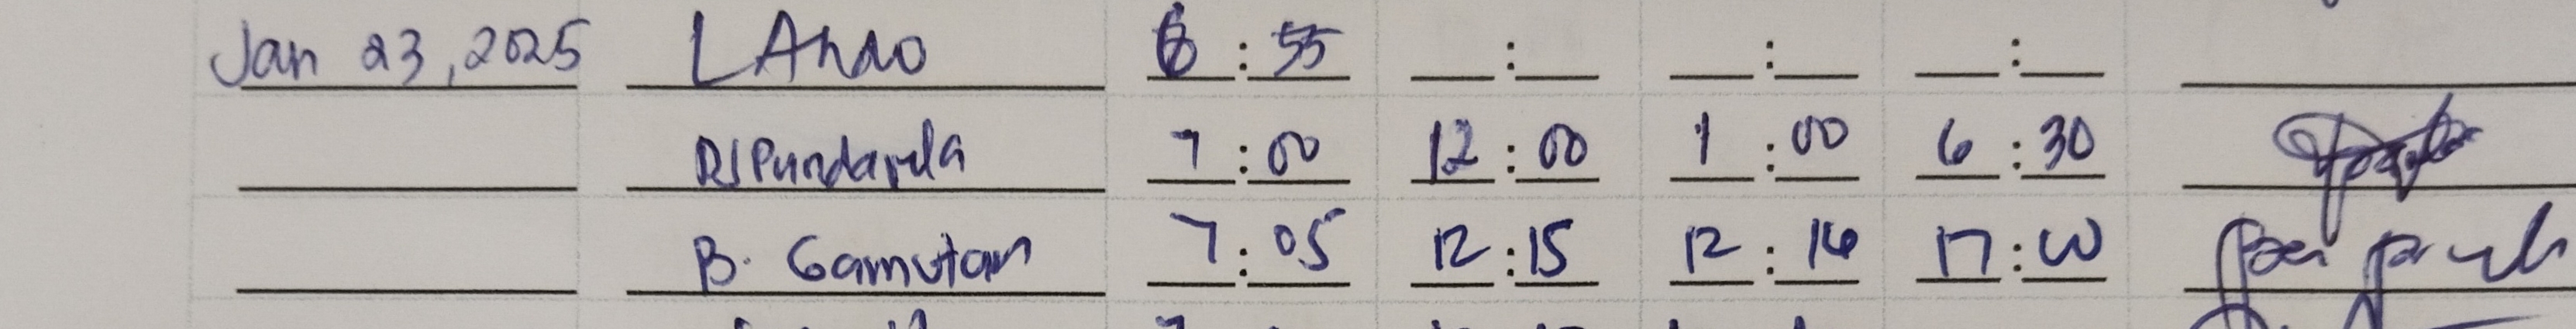 Jan 23, 2025 LAndo 6:55 __:__ __:__ __:__
7:00 12:00 1:00 6:30
B. Gamutan 7:05 12:15 12:16 17:00